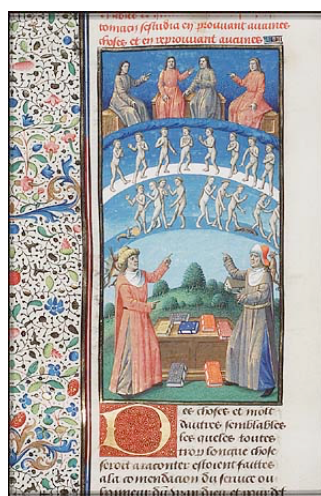 tomacii sestudia en prouuant aucunes
choses et en reprouuant aucunes
Des choses et molt
dautres semblables
les queles toutes
trop longue chose
seroit a raconter estoient faittes
a la comendacion du seruice ou